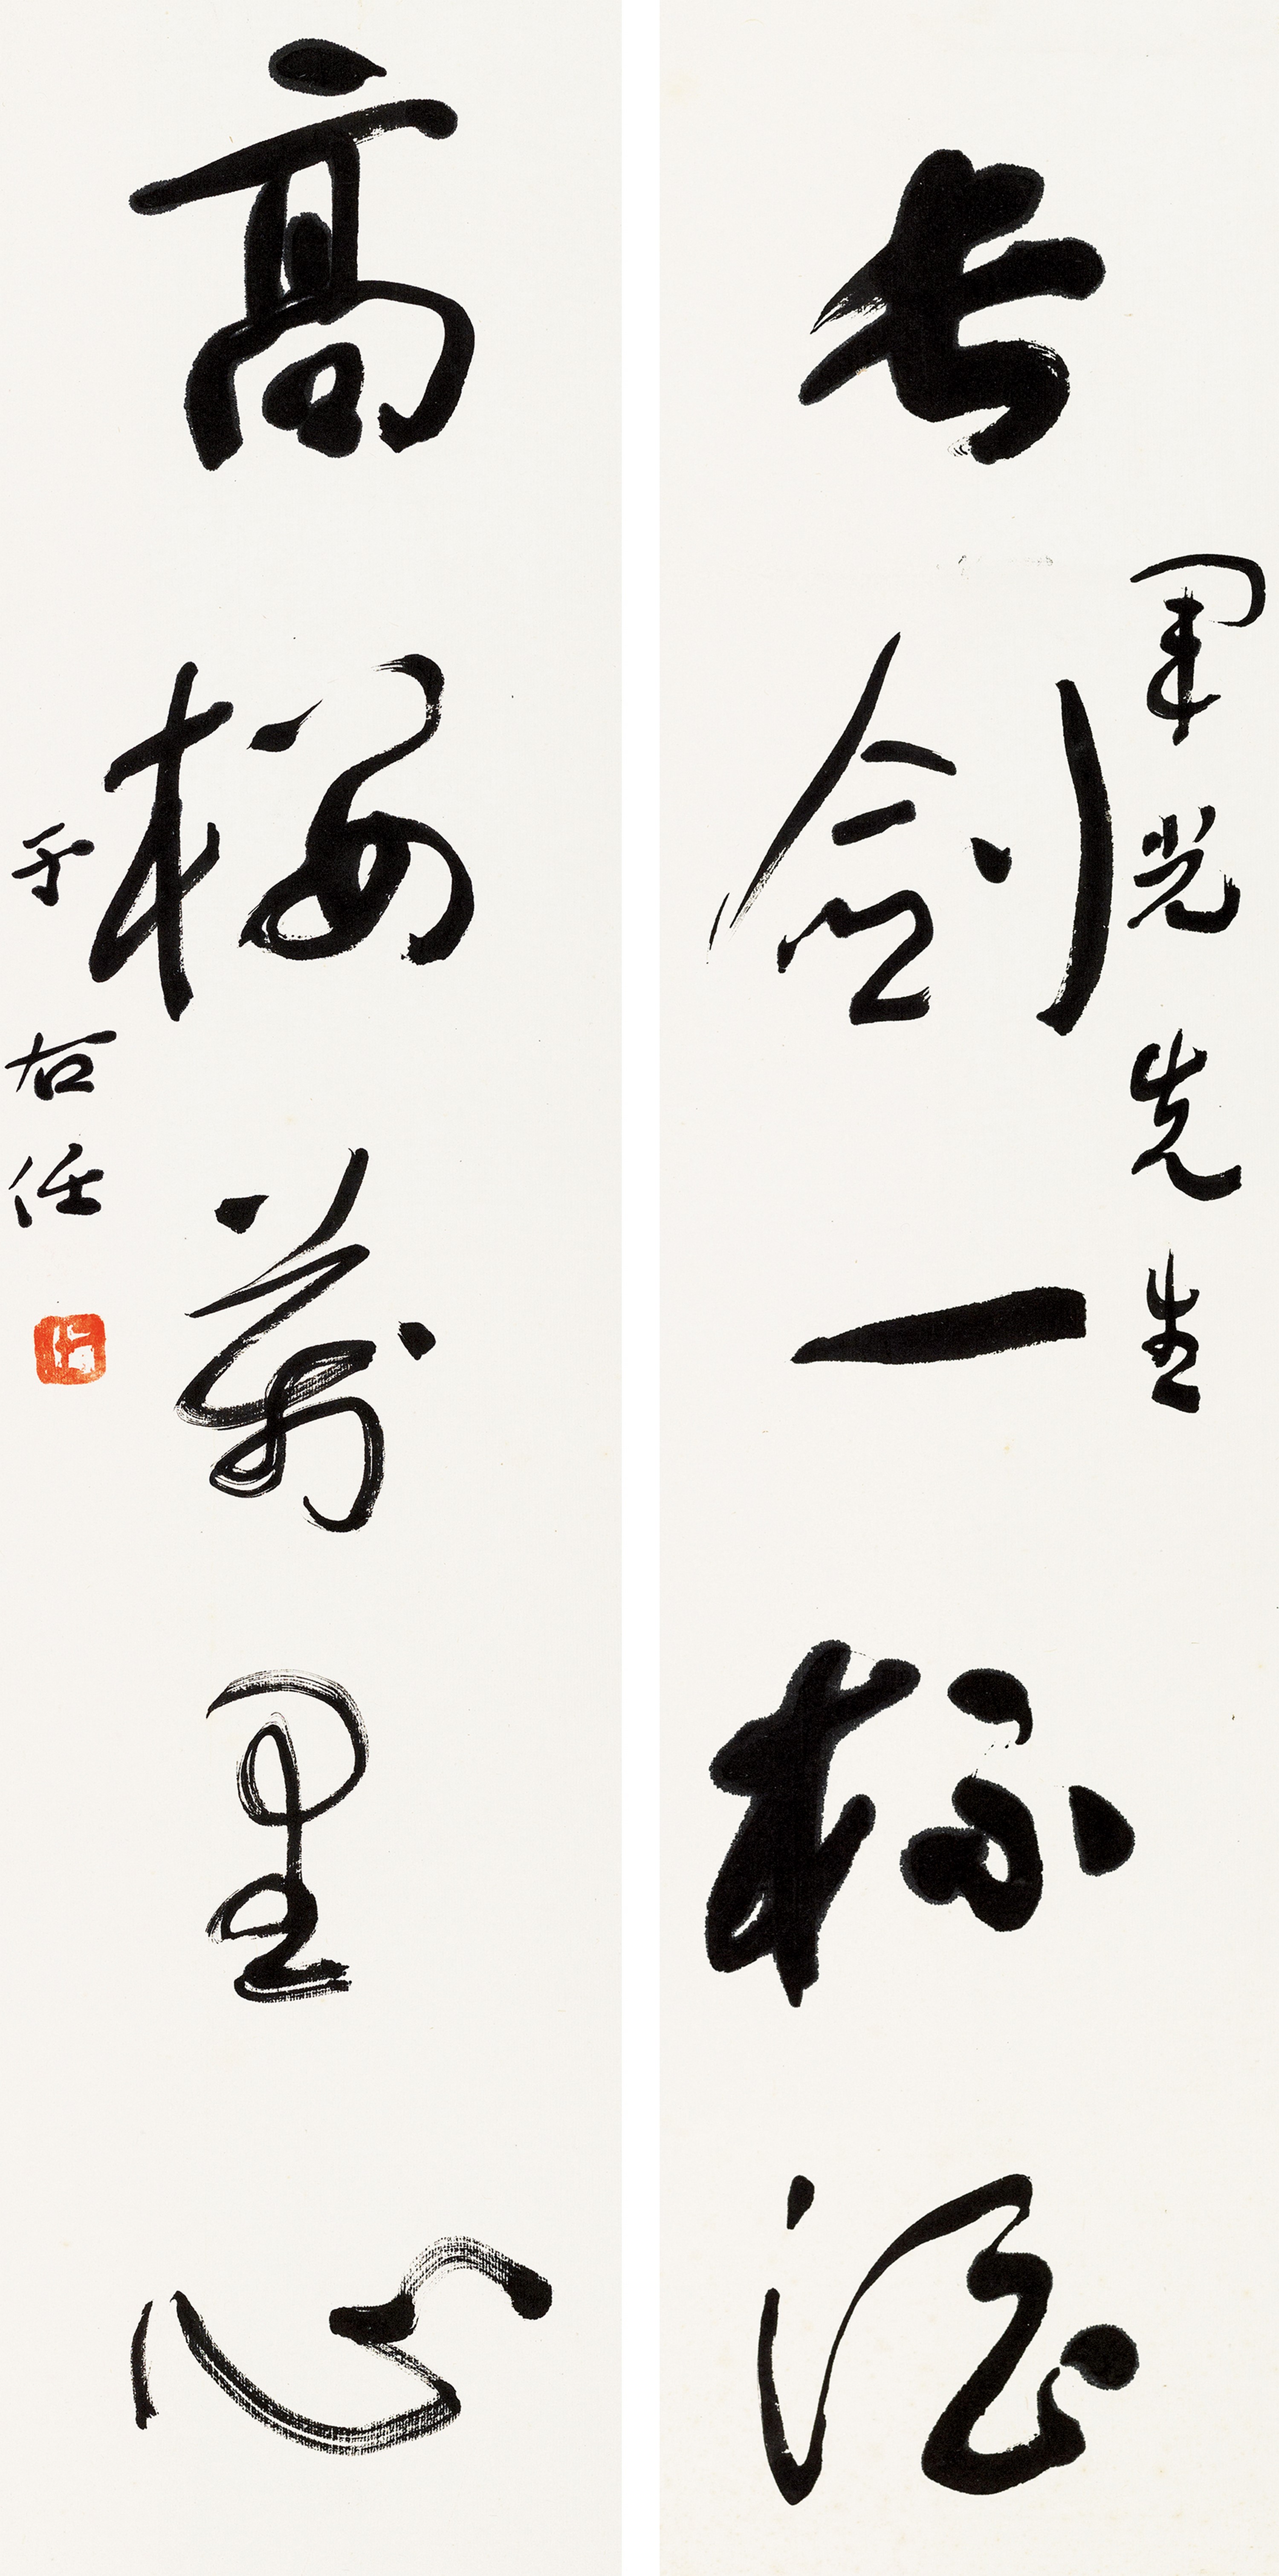 長劍一杯酒
軍光先生
高樓萬里心
于右任